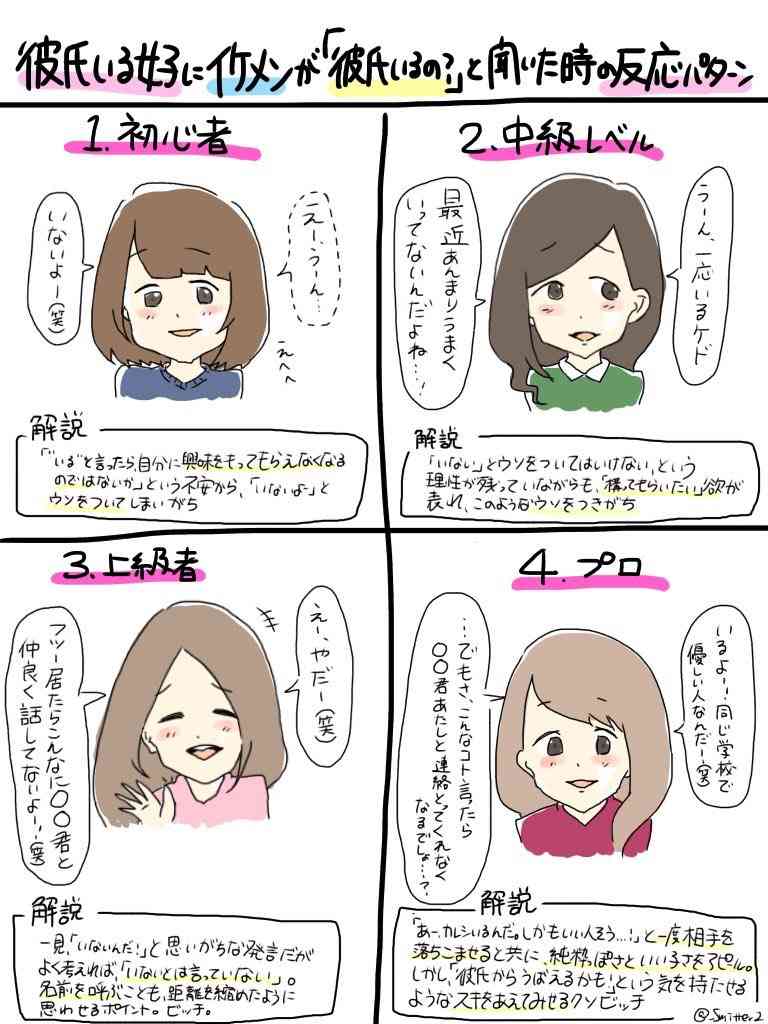 彼氏いる女子にイケメンが「彼氏いるの？」と聞いた時の反応パターン
1.初心者
えー、うーん…
いないよー(笑)
えへへ
解説
「"いる"と言ったら、自分に興味をもってもらえなくなる
のではないか」という不安から、「いないよ」と
ウソをついてしまいがち
2.中級レベル
うーん、一応いるケド
最近あんまりうまく
いってないんだよね…！
解説
「いない」とウソをついてはいけない、という
理性が残っていながらも、「構ってもらいたい」欲が
表れ、このようなウソをつきがち
3.上級者
えー、やだー(笑)
フツー居たらこんなに〇〇君と
仲良く話してないよー！(笑)
解説
一見、「いないんだ！」と思いがちな発言だが
よく考えれば、「いないとは言っていない」。
名前を呼ぶことも、距離を縮めたように
思わせるポイント。ビッチ。
4.プロ
いるよー！同じ学校で
優しい人なんだー(笑)
…でもさ、こんなコト言ったら
〇〇君あたしと連絡とってくれなく
なるでしょ…？
解説
「あー、カレシいるんだ。しかもいい人そう…！」と一度相手を
落ちこませると共に、純粋っぽさといい子さをアピル。
しかし、「彼氏からうばえるかも！」という気を持たせる
ようなスキをあえてみせるクソビッチ